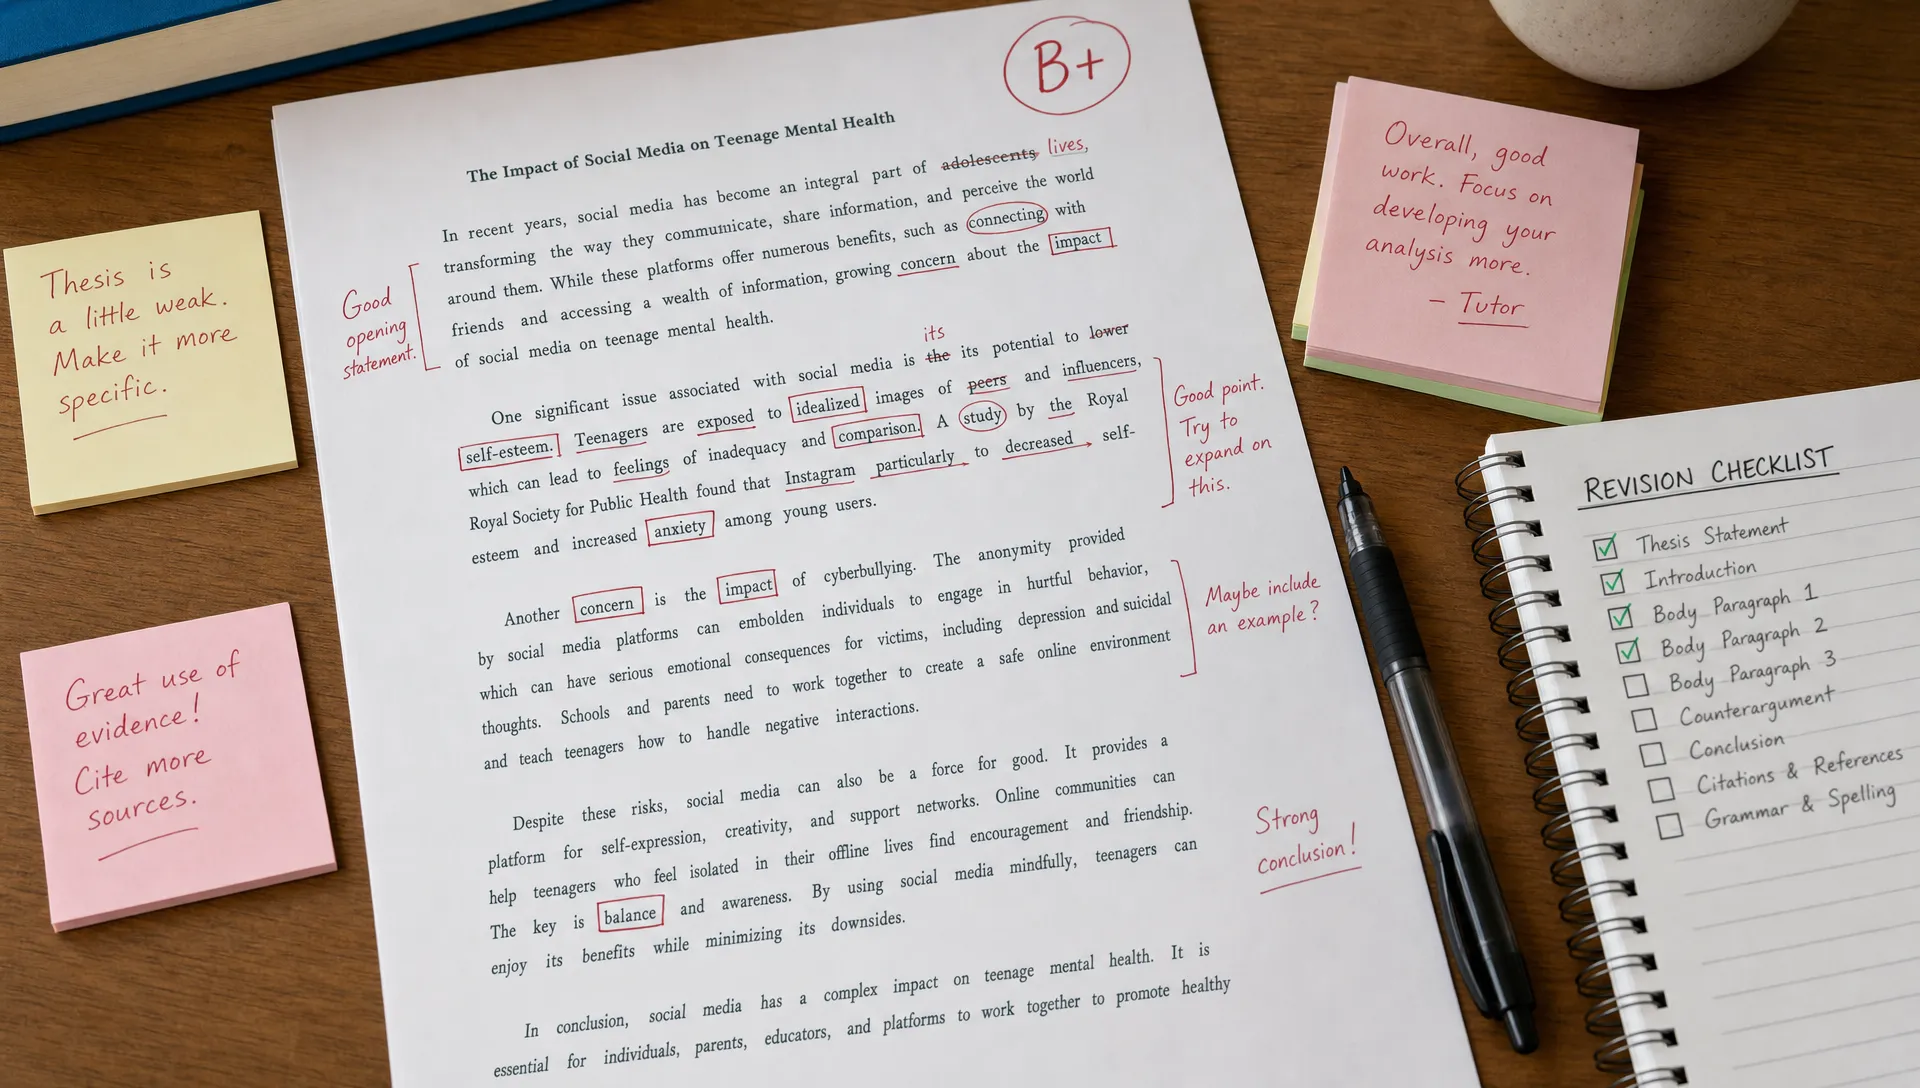 B+
The Impact of Social Media on Teenage Mental Health
In recent years, social media has become an integral part of adolescents lives,
transforming the way they communicate, share information, and perceive the world
around them. While these platforms offer numerous benefits, such as connecting with
friends and accessing a wealth of information, growing concern about the impact
of social media on teenage mental health.
Good
opening
statement.
its
One significant issue associated with social media is the its potential to lower
self-esteem. Teenagers are exposed to idealized images of peers and influencers,
which can lead to feelings of inadequacy and comparison. A study by the Royal
Royal Society for Public Health found that Instagram particularly to decreased self-
esteem and increased anxiety among young users.
Good point.
Try to
expand on
this.
Another concern is the impact of cyberbullying. The anonymity provided
by social media platforms can embolden individuals to engage in hurtful behavior,
which can have serious emotional consequences for victims, including depression and suicidal
thoughts. Schools and parents need to work together to create a safe online environment
and teach teenagers how to handle negative interactions.
Maybe include
an example?
Despite these risks, social media can also be a force for good. It provides a
platform for self-expression, creativity, and support networks. Online communities can
help teenagers who feel isolated in their offline lives find encouragement and friendship.
The key is balance and awareness. By using social media mindfully, teenagers can
enjoy its benefits while minimizing its downsides.
Strong
conclusion!
In conclusion, social media has a complex impact on teenage mental health. It is
essential for individuals, parents, educators, and platforms to work together to promote healthy
Thesis is
a little weak.
Make it more
specific.
Great use of
evidence!
Cite more
sources.
Overall, good
work. Focus on
developing your
analysis more.
– Tutor
REVISION CHECKLIST
Thesis Statement
Introduction
Body Paragraph 1
Body Paragraph 2
Body Paragraph 3
Counterargument
Conclusion
Citations & References
Grammar & Spelling